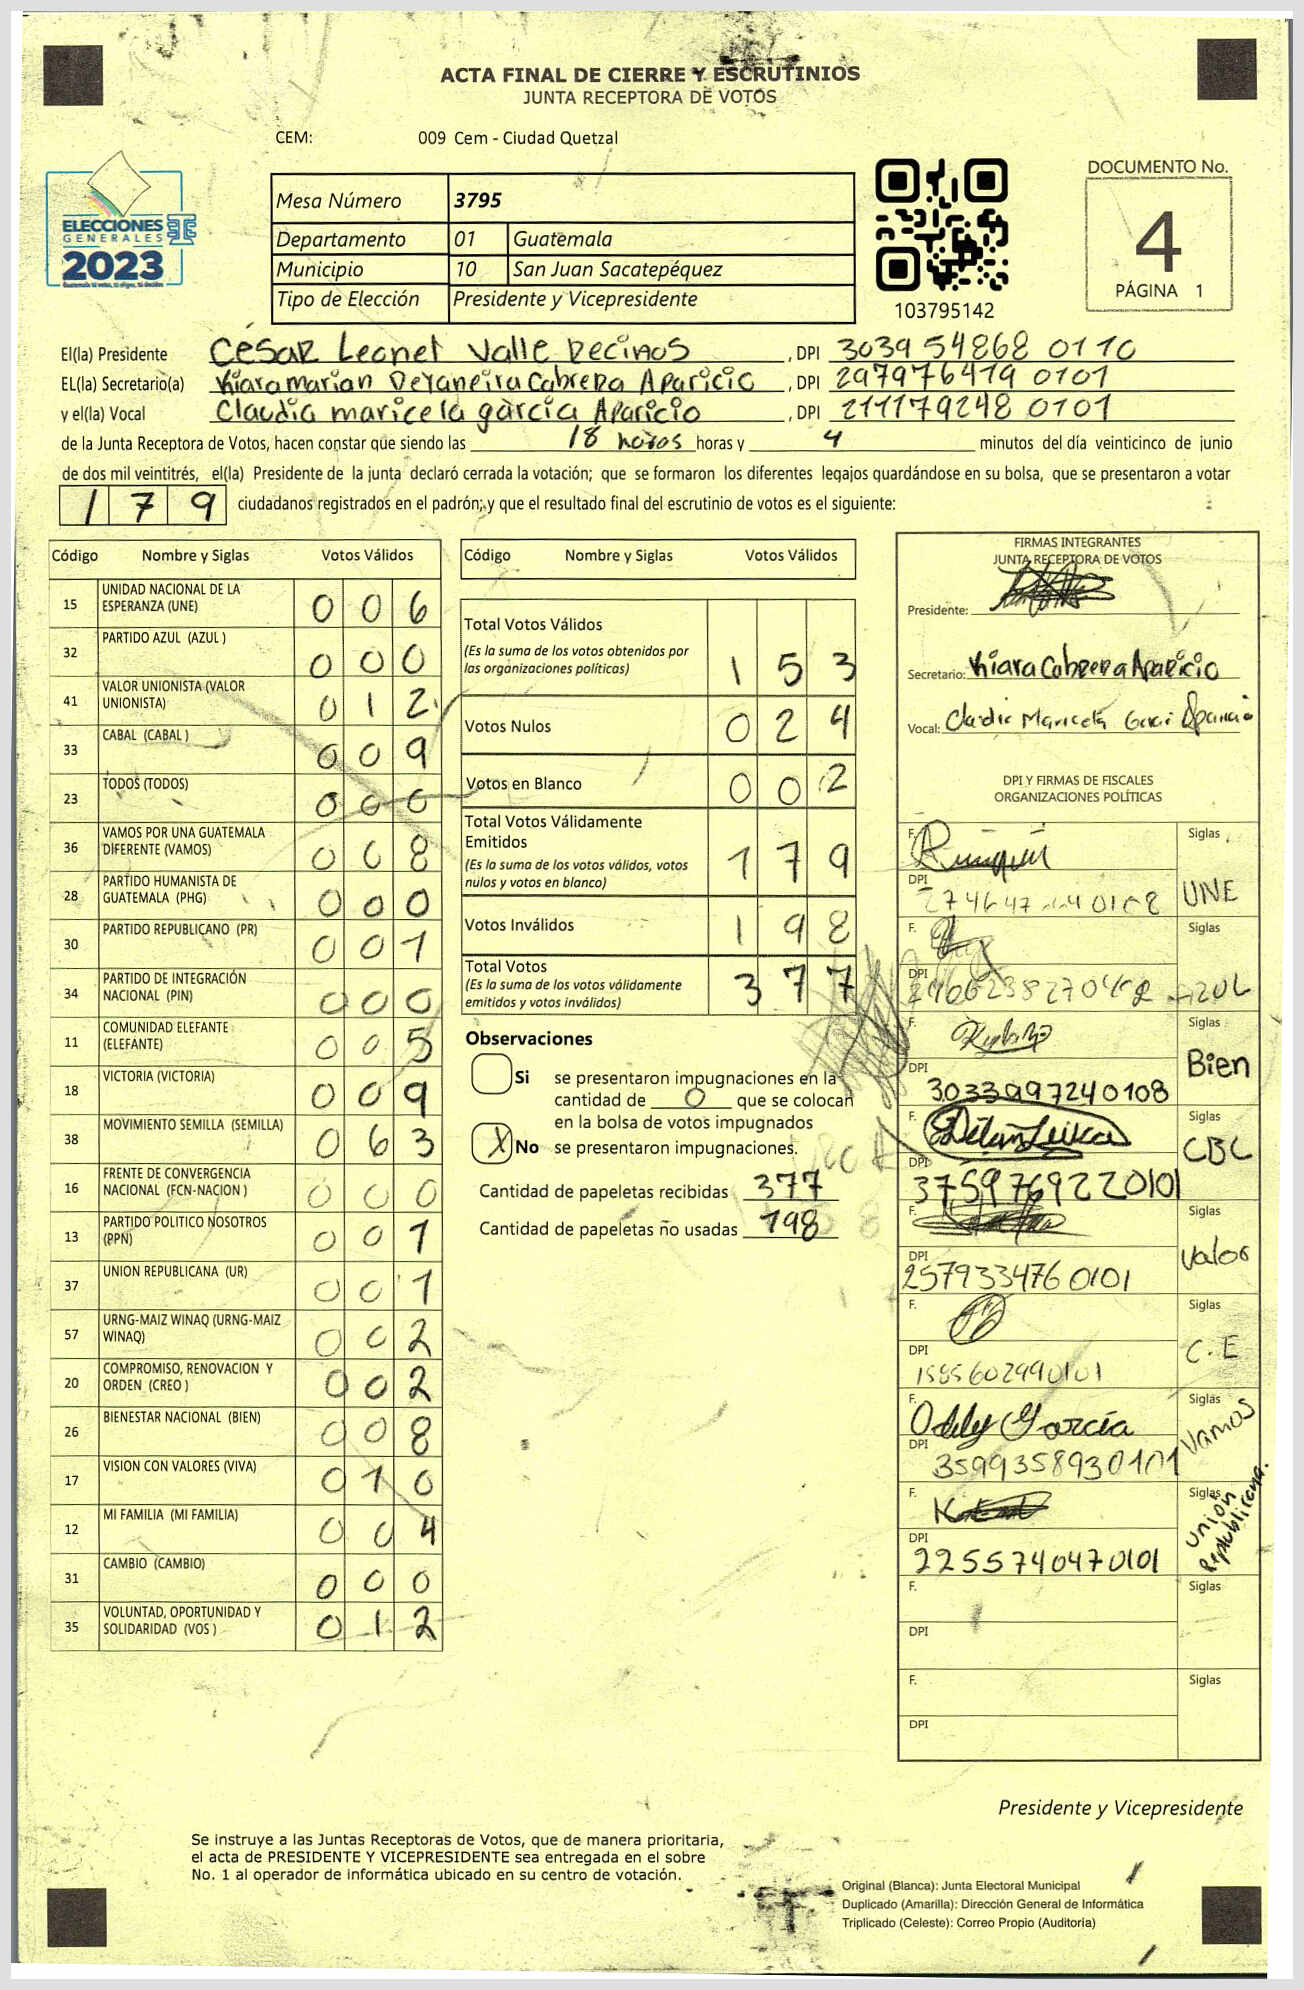 ACTA FINAL DE CIERRE Y ESCRUTINIOS
JUNTA RECEPTORA DE VOTOS
CEM: 009 Cem - Ciudad Quetzal
ELECCIONES
GENERALES
2023
Mesa Número 3795
Departamento 01 Guatemala
Municipio 10 San Juan Sacatepéquez
Tipo de Elección Presidente y Vicepresidente
103795142
DOCUMENTO No.
4
PÁGINA 1
El(la) Presidente César Leonel Valle Recinos, DPI 3039 54868 0110
EL(la) Secretario(a) Kiara marian Deyaneira Cabrera Aparicio, DPI 297976419 0101
y el(la) Vocal Claudia maricela garcía Aparicio, DPI 211179248 0101
de la Junta Receptora de Votos, hacen constar que siendo las 18 horas horas y 4 minutos del día veinticinco de junio
de dos mil veintitrés, el(la) Presidente de la junta declaró cerrada la votación; que se formaron los diferentes legajos guardándose en su bolsa, que se presentaron a votar
179 ciudadanos registrados en el padrón; y que el resultado final del escrutinio de votos es el siguiente:
Código Nombre y Siglas Votos Válidos
15 UNIDAD NACIONAL DE LA ESPERANZA (UNE) 006
32 PARTIDO AZUL (AZUL ) 000
41 VALOR UNIONISTA (VALOR UNIONISTA) 012
33 CABAL (CABAL ) 009
23 TODOS (TODOS) 000
36 VAMOS POR UNA GUATEMALA DIFERENTE (VAMOS) 008
28 PARTIDO HUMANISTA DE GUATEMALA (PHG) 000
30 PARTIDO REPUBLICANO (PR) 001
34 PARTIDO DE INTEGRACIÓN NACIONAL (PIN) 000
11 COMUNIDAD ELEFANTE (ELEFANTE) 005
18 VICTORIA (VICTORIA) 009
38 MOVIMIENTO SEMILLA (SEMILLA) 063
16 FRENTE DE CONVERGENCIA NACIONAL (FCN-NACION ) 000
13 PARTIDO POLITICO NOSOTROS (PPN) 001
37 UNION REPUBLICANA (UR) 001
57 URNG-MAIZ WINAQ (URNG-MAIZ WINAQ) 002
20 COMPROMISO, RENOVACION Y ORDEN (CREO ) 002
26 BIENESTAR NACIONAL (BIEN) 008
17 VISION CON VALORES (VIVA) 010
12 MI FAMILIA (MI FAMILIA) 004
31 CAMBIO (CAMBIO) 000
35 VOLUNTAD, OPORTUNIDAD Y SOLIDARIDAD (VOS ) 012
Código Nombre y Siglas Votos Válidos
Total Votos Válidos 153
(Es la suma de los votos obtenidos por
las organizaciones políticas)
Votos Nulos 024
Votos en Blanco 002
Total Votos Válidamente
Emitidos 179
(Es la suma de los votos válidos, votos
nulos y votos en blanco)
Votos Inválidos 198
Total Votos 377
(Es la suma de los votos válidamente
emitidos y votos inválidos)
Observaciones
Si se presentaron impugnaciones en la
cantidad de 0 que se colocan
en la bolsa de votos impugnados
X No se presentaron impugnaciones.
Cantidad de papeletas recibidas 377
Cantidad de papeletas no usadas 198
FIRMAS INTEGRANTES
JUNTA RECEPTORA DE VOTOS
Presidente:
Secretario: Kiara Cabrera Aparicio
Vocal: Claudia Maricela
DPI Y FIRMAS DE FISCALES
ORGANIZACIONES POLÍTICAS
F. Siglas
DPI UNE
F. Siglas
DPI AZUL
F. Siglas
Bien
DPI 3033997240108
F. Siglas
CBC
DPI 3759769220101
F. Siglas
Valor
DPI 2579334760101
F. Siglas
C.E
DPI 1585602990101
F. Odily García Siglas
Vamos
DPI 3599358930101
F. Siglas
Unión Republicana.
DPI 2255740470101
F. Siglas
DPI
F. Siglas
DPI
Presidente y Vicepresidente
Se instruye a las Juntas Receptoras de Votos, que de manera prioritaria,
el acta de PRESIDENTE Y VICEPRESIDENTE sea entregada en el sobre
No. 1 al operador de informática ubicado en su centro de votación.
Original (Blanca): Junta Electoral Municipal
Duplicado (Amarilla): Dirección General de Informática
Triplicado (Celeste): Correo Propio (Auditoría)